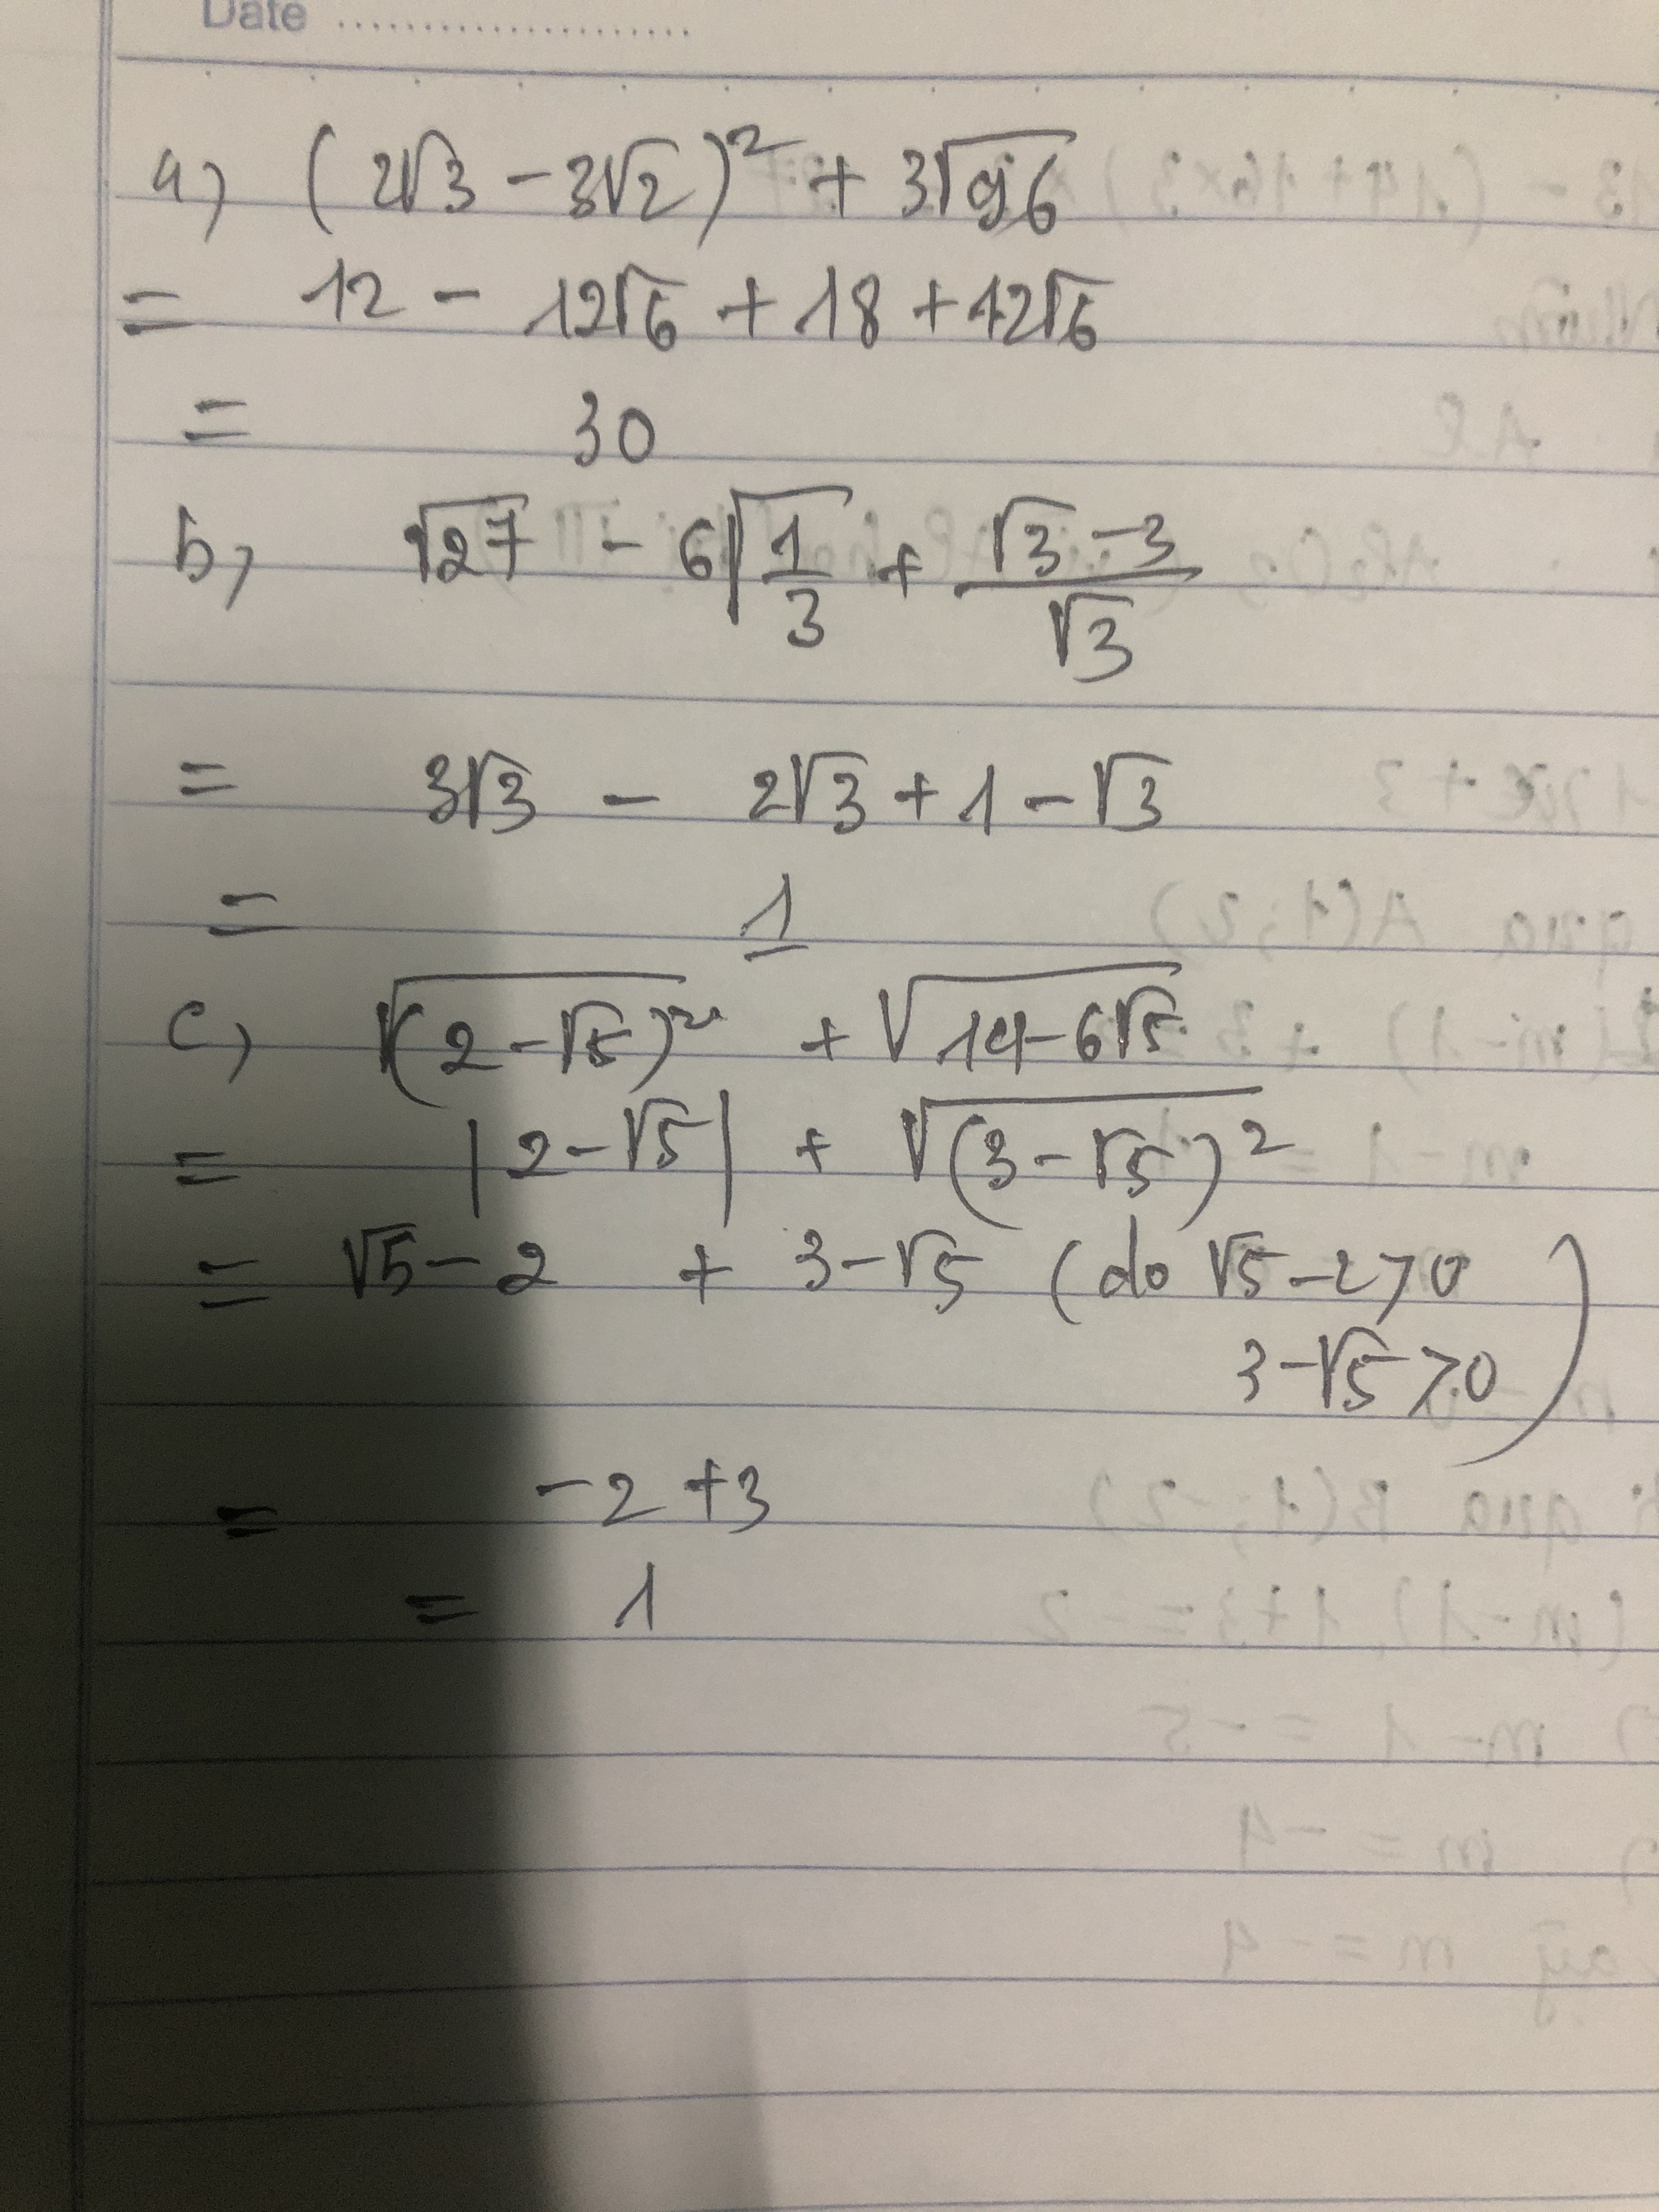 Date ........................
a) (2√3 - 3√2)² + 3√96
= 12 - 12√6 + 18 + 12√6
= 30
b) √27 - 6√(1/3) + (√3 - 3)/√3
= 3√3 - 2√3 + 1 - √3
= 1
c) √(2 - √5)² + √(14 - 6√5)
= |2 - √5| + √(3 - √5)²
= √5 - 2 + 3 - √5 (do √5 - 2 > 0
3 - √5 > 0)
= -2 + 3
= 1